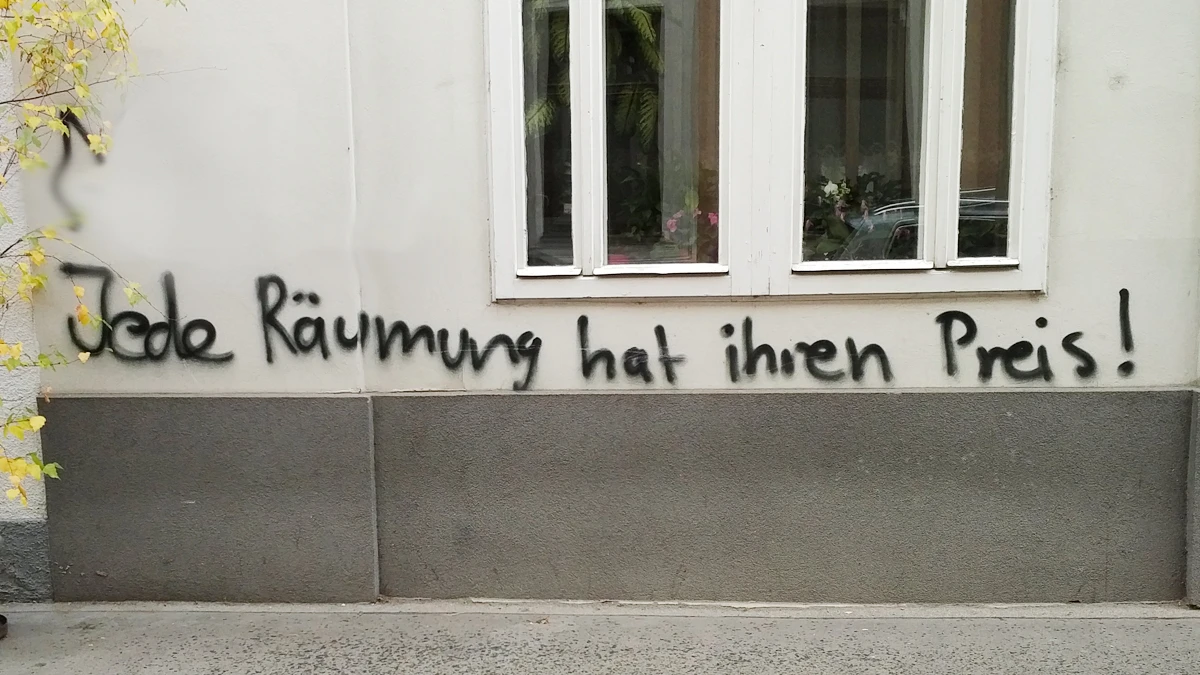 Jede Räumung hat ihren Preis!